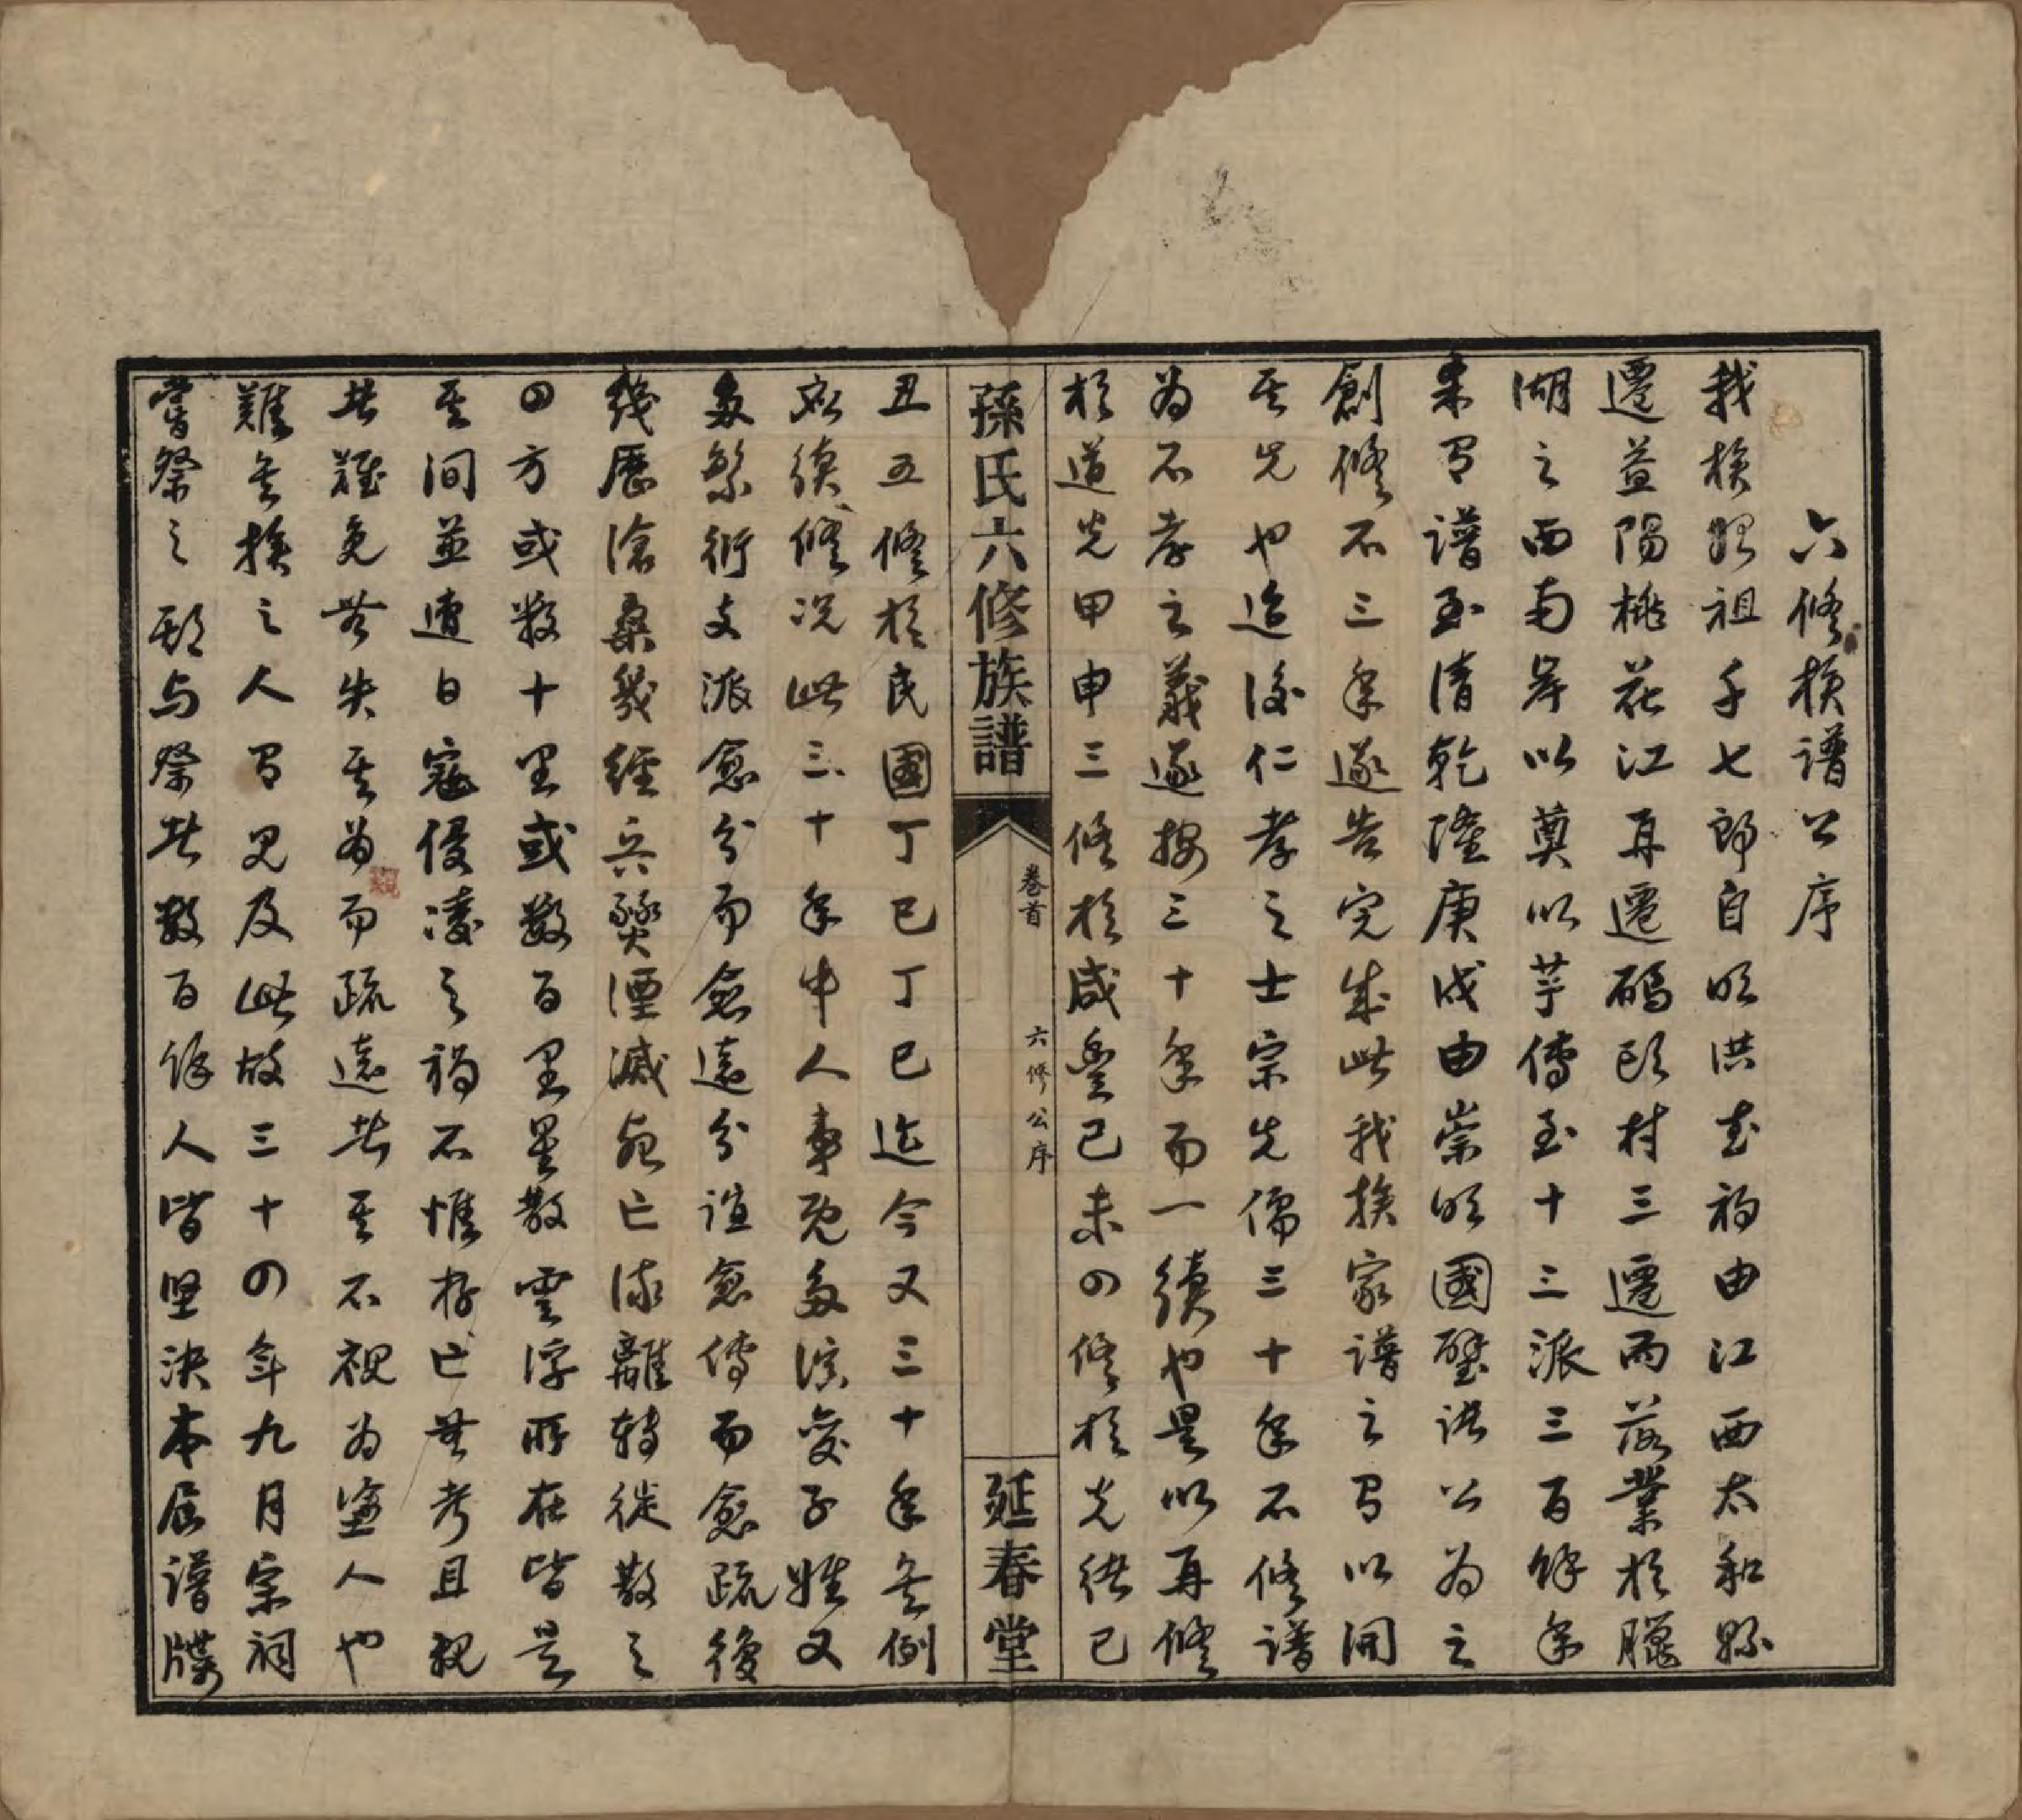 六修族譜公序
我族始祖千七郎自明洪武初由江西太和縣
遷益陽桃花江再遷碼頭村三遷而落業於臘
湖之西南岸以奠以芋傳至十三派三百餘年
未有譜至清乾隆庚戌由崇明國璧諸公為之
創修不三年遂告完成此我族家譜之有以開
其先也迨後仁孝之士宗先儒三十年不修譜
為不孝之義遂按三十年而一續也是以再修
於道光甲申三修於咸豐己未四修於光緒己
孫氏六修族譜
卷首
六修公序
延春堂
丑五修於民國丁巳丁巳迄今又三十年矣例
應續修况此三十年中人事既多演變子姓又
多繁衍支派愈分而愈遠分誼愈傳而愈疏後
幾歷滄桑幾經兵燹湮滅死亡流離轉徙散之
四方或數十里或數百里星散雲浮所在皆是
其間並遭日寇侵凌之禍不惟存亡無考且親
者難免無失其為而疏遠者其不視為塗人也
難矣族之人有見及此故三十四年九月宗祠
嘗祭之期与祭者數百餘人皆坚決本届譜牒